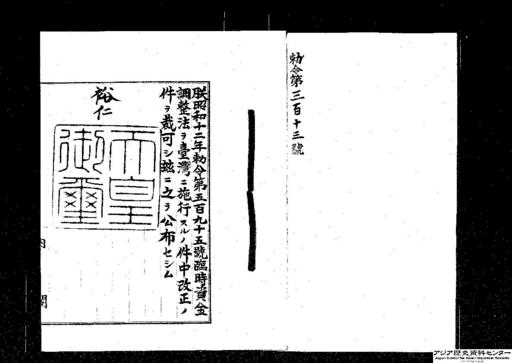 勅令第三百十三號
朕昭和十二年勅令第五百九十五號臨時資金
調整法ヲ臺灣ニ施行スルノ件中改正ノ
件ヲ裁可シ玆ニ之ヲ公布セシム
裕仁
天皇
御璽
内閣
アジア歴史資料センター
Japan Center for Asian Historical Records